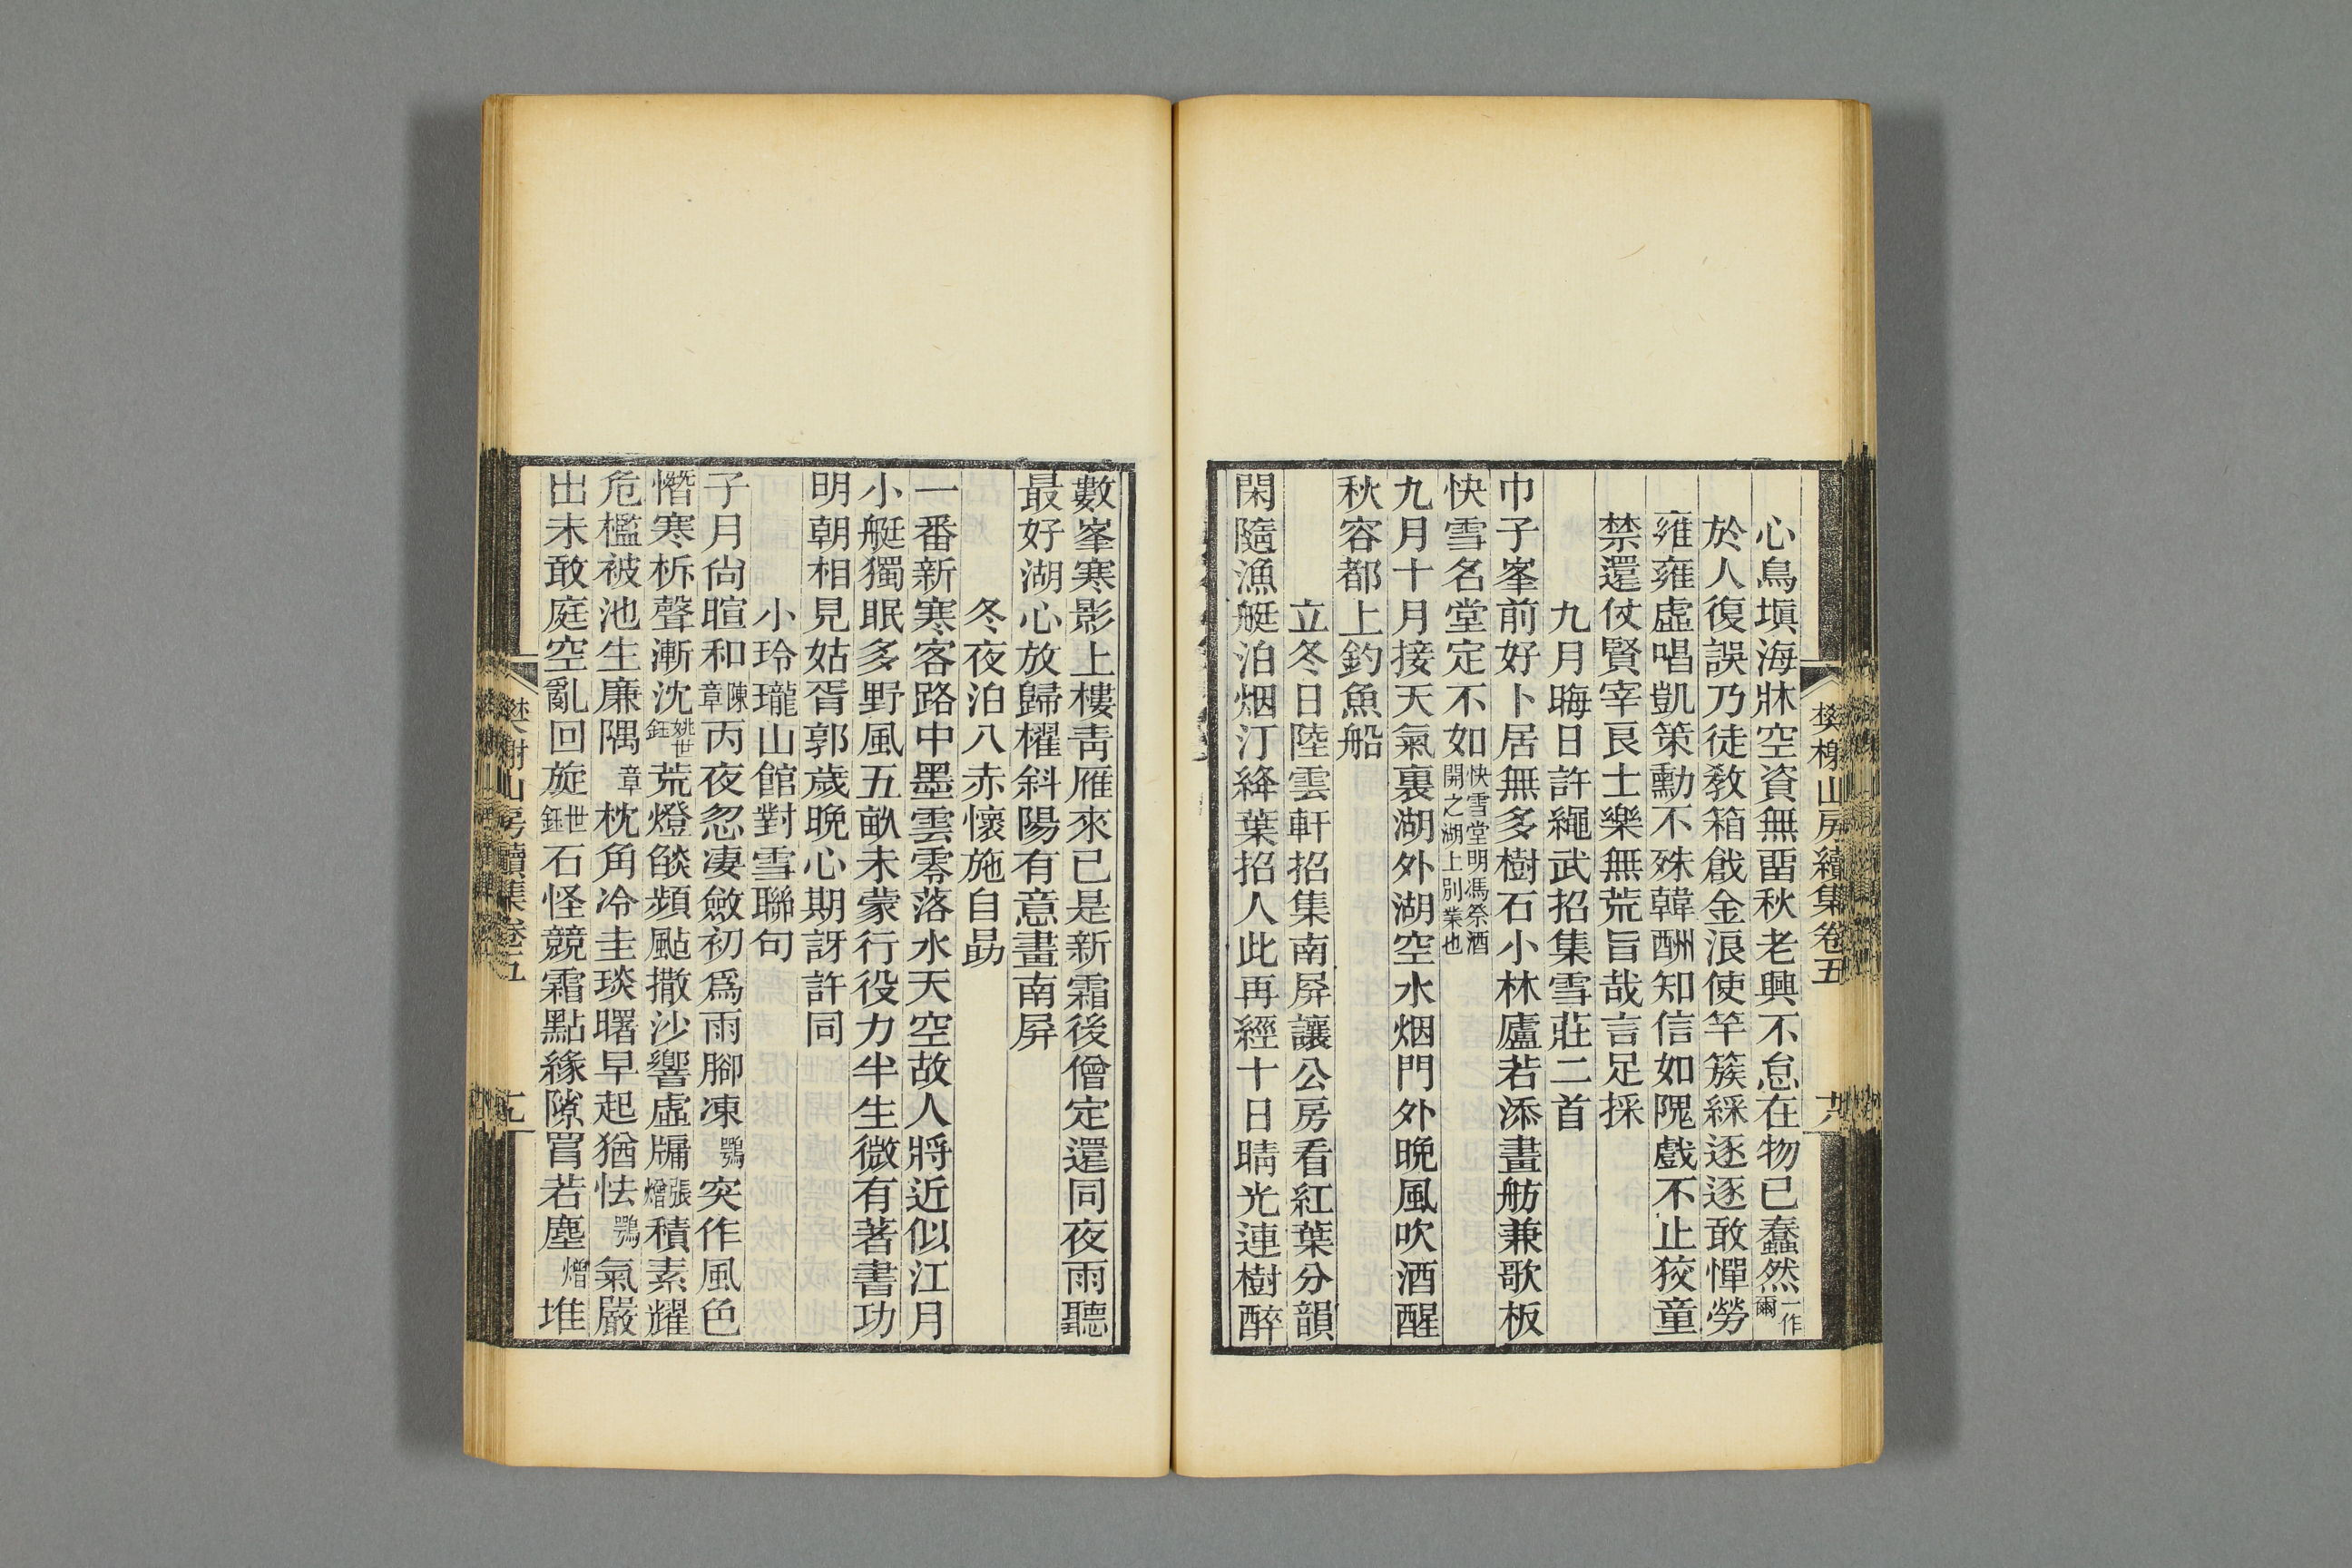 樊榭山房續集卷五
十八
心鳥塡海牀空資無畱秋老興不怠在物已蠢然一作爾
於人復誤乃徒敎箱戧金浪使竿簇綵逐逐敢憚勞
雍雍虛唱凱策勳不殊韓酬知信如隗戲不止狡童
禁還仗賢宰良士樂無荒旨哉言足採
九月晦日許繩武招集雪莊二首
巾子峯前好卜居無多樹石小林廬若添畫舫兼歌板
快雪名堂定不如快雪堂明馮祭酒開之湖上別業也
九月十月接天氣裏湖外湖空水烟門外晩風吹酒醒
秋容都上釣魚船
立冬日陸雲軒招集南屛讓公房看紅葉分韻
閑隨漁艇泊烟汀絳葉招人此再經十日晴光連樹醉
數峯寒影上樓靑雁來已是新霜後僧定還同夜雨聽
最好湖心放歸櫂斜陽有意畫南屛
冬夜泊八赤懷施自勗
一番新寒客路中墨雲零落水天空故人將近似江月
小艇獨眠多野風五畝未蒙行役力半生微有著書功
明朝相見姑胥郭歲晩心期訝許同
小玲瓏山館對雪聯句
子月尙暄和陳章丙夜忽凄斂初爲雨腳凍鶚突作風色
憯寒柝聲漸沈姚世鈺荒燈餤頻颭撒沙響虛牗張熷積素耀
危檻被池生廉隅章枕角冷圭琰曙早起猶怯鶚氣嚴
出未敢庭空亂回旋世鈺石怪競霜點緣隙罥若塵熷堆
樊榭山房續集卷五